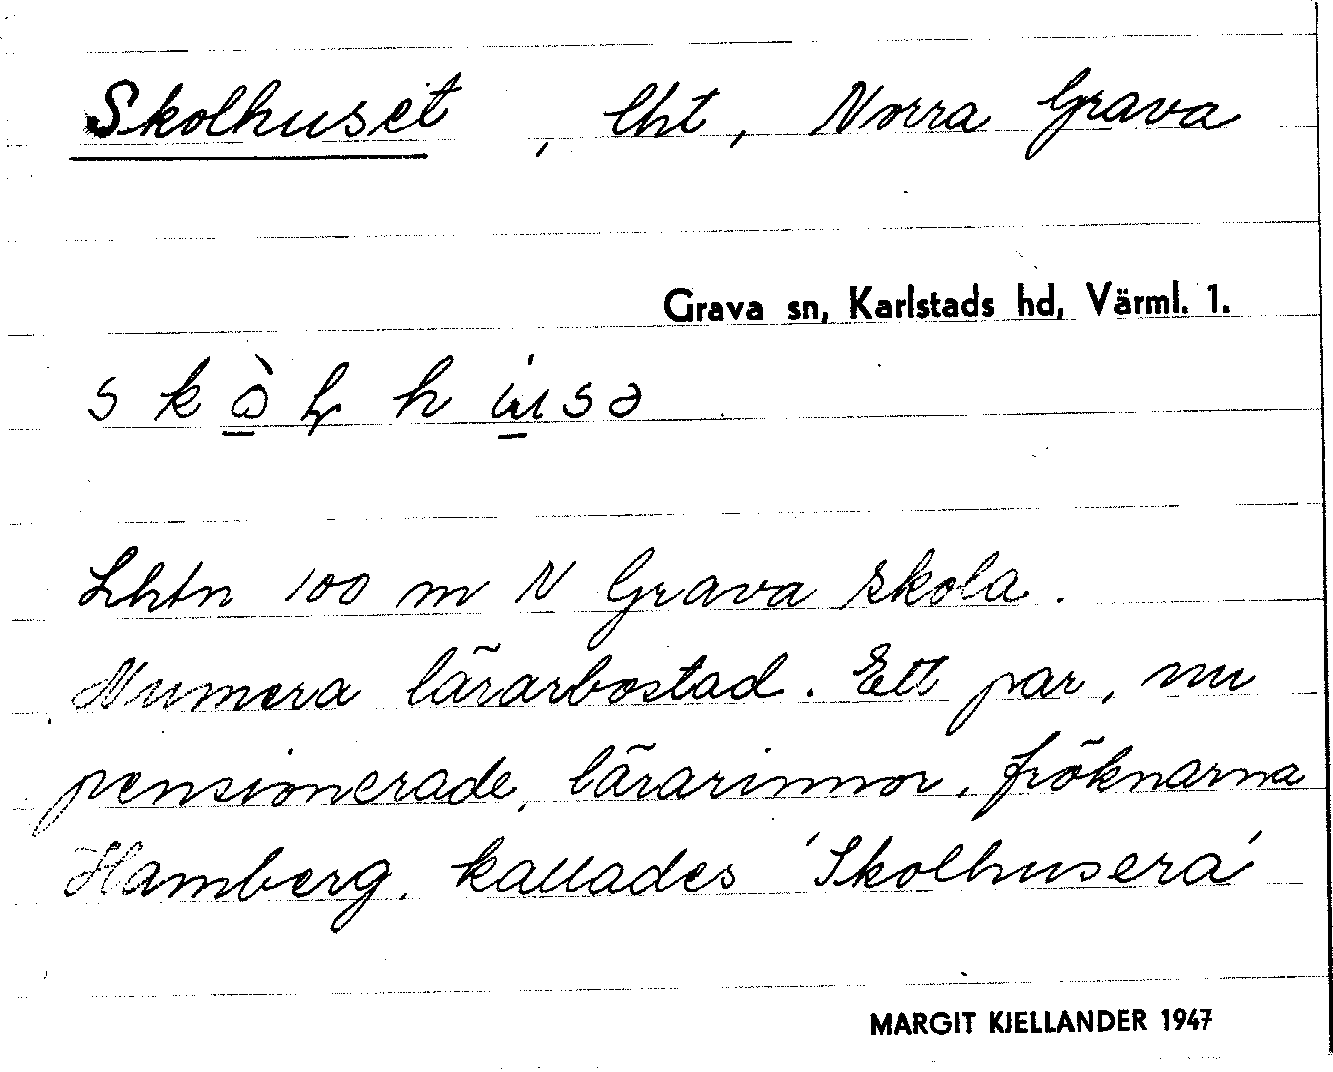 Skolhuset, lht, Norra Grava
Grava sn, Karlstads hd, Värml. 1.
Lhtn 100 m N Grava skola.
Numera lärarbostad. Ett par, nu
pensionerade, lärarinnor, fröknarna
Hamberg, kallades 'Skolhusera'
MARGIT KJELLANDER 1947